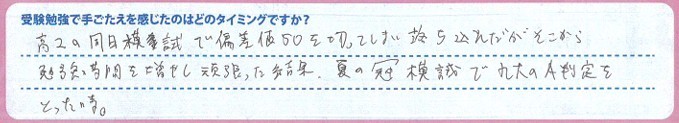 受験勉強で手ごたえを感じたのはどのタイミングですか？
高2の同日模試で偏差値50を切ってしまい落ち込んだがそこから
勉強時間を増やし頑張った結果、夏の冠模試で九大のA判定を
とった時。